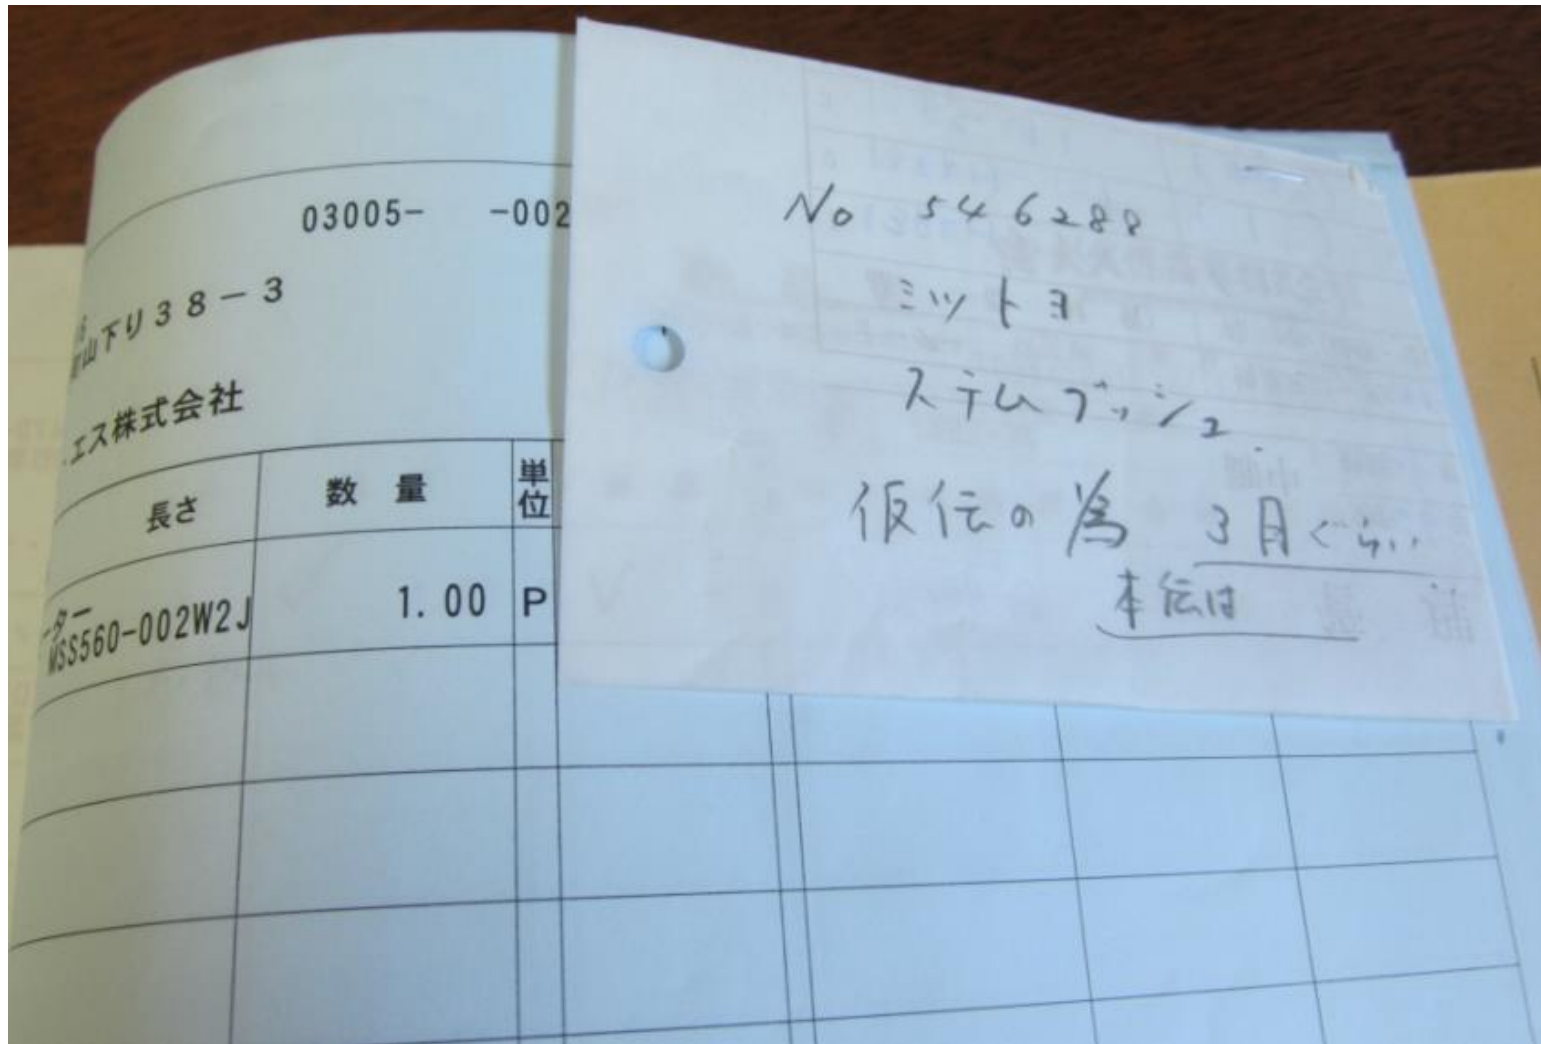 03005-　-002
山下り38-3
エス株式会社
長さ
数量
単位
ター
MSS560-002W2J
1.00
P
No 546288
ミツトヨ
ステムブッシュ.
仮伝の為 3月ぐらい
本伝は